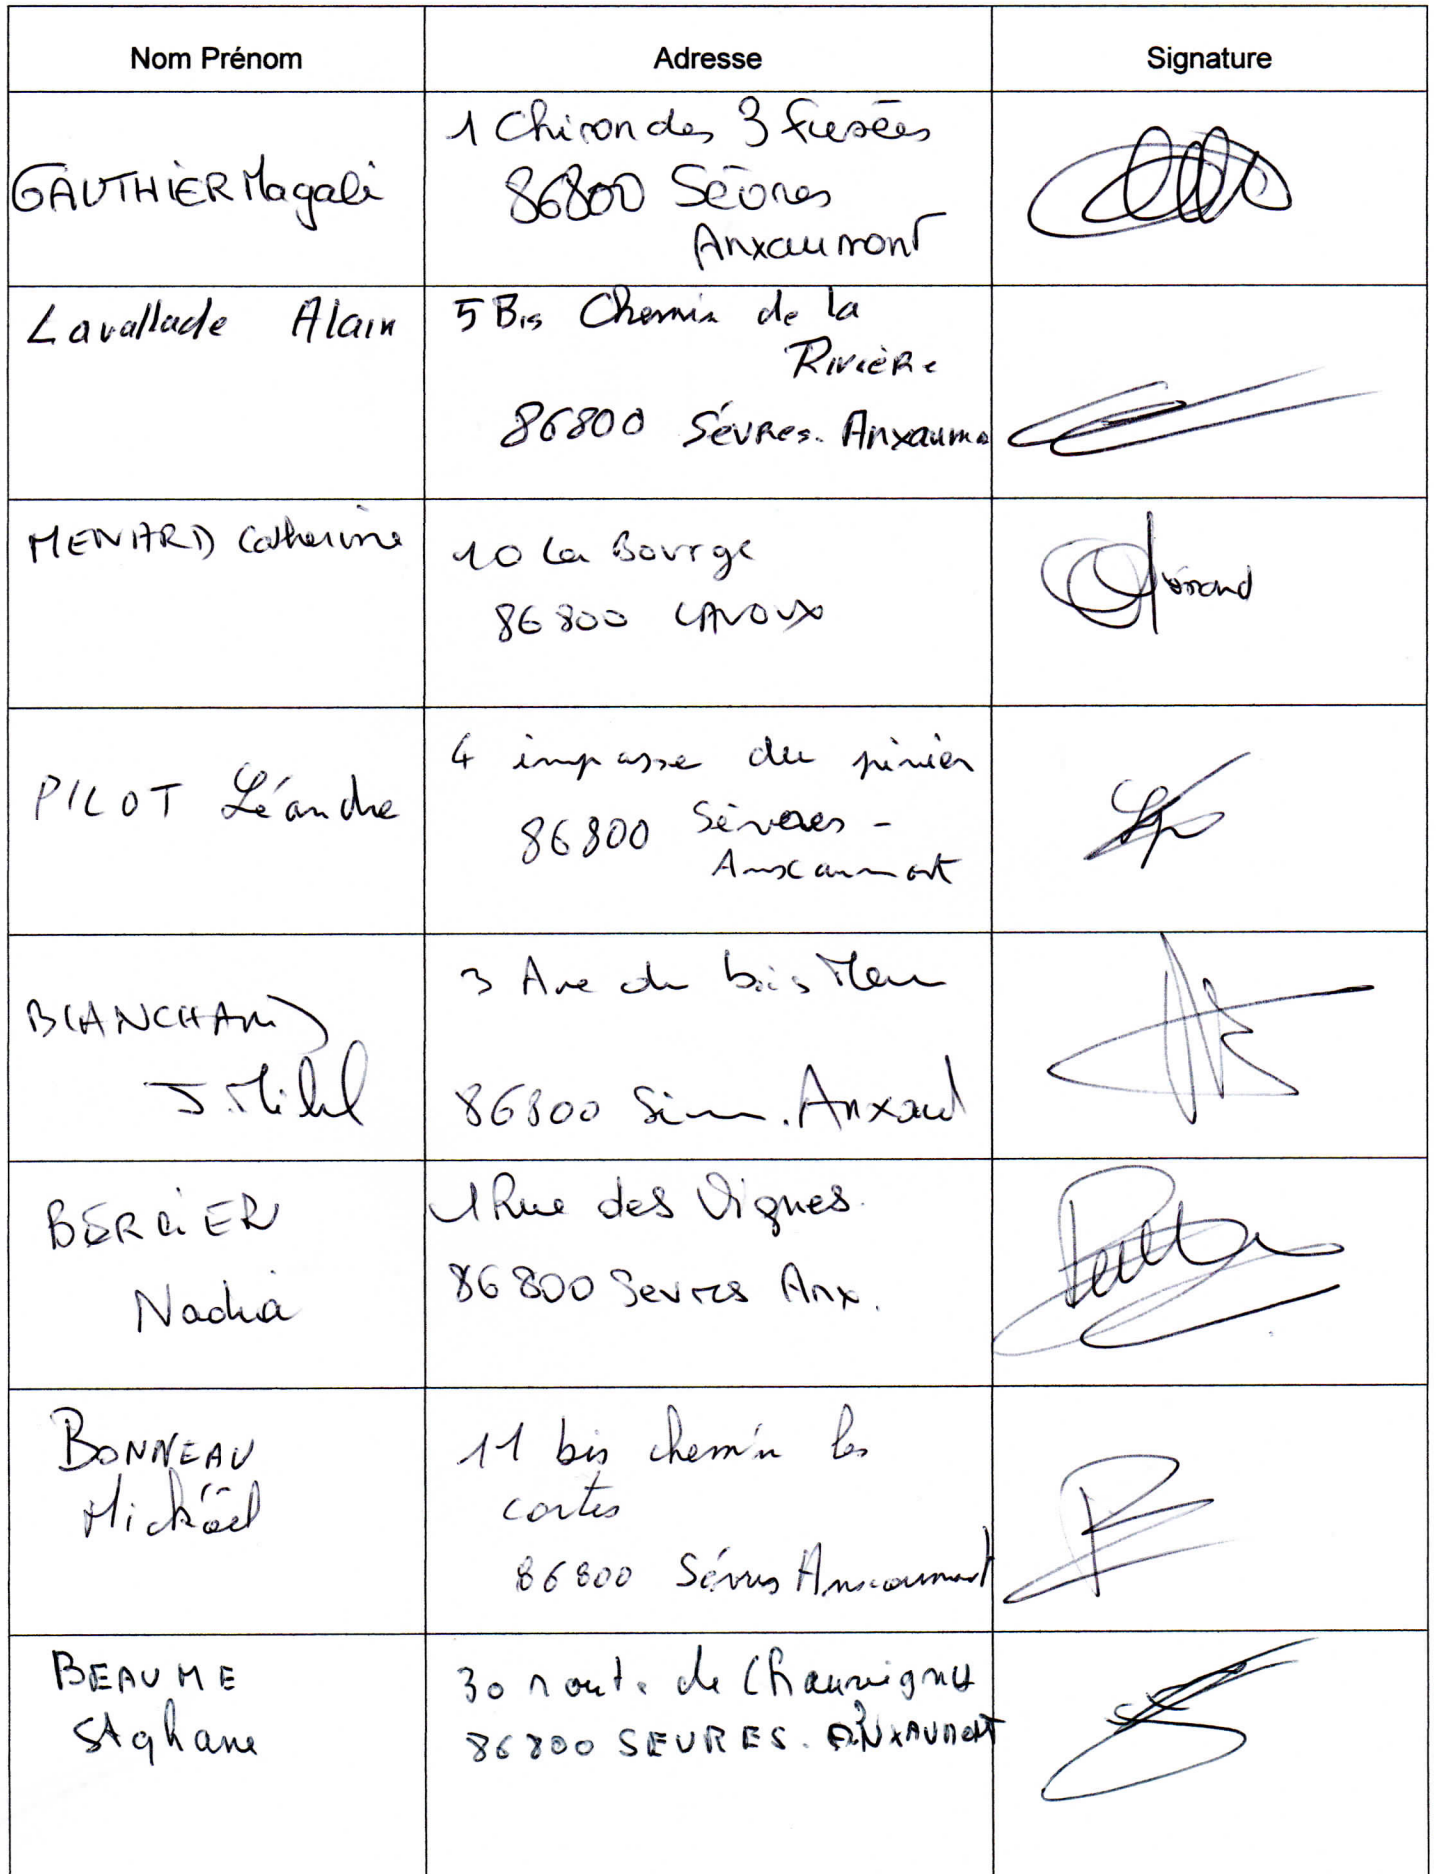 Nom Prénom
Adresse
Signature
GAUTHIER Magali
1 Chiron des 3 fusées
86800 Sèvres
Anxaumont
Lavallade Alain
5 Bis Chemin de la
Rivière
86800 Sévres. Anxaumo
MENARD Catherine
10 la Bourge
86800 LAVOUX
PILOT Léandre
4 impasse du pinier
86800 Sèvres -
Anxaumont
BLANCHARD
J. Michel
3 Ave du bois
86800 . Anxau
BERCIER
Nadia
1 Rue des Vignes.
86800 Sevres Anx.
BONNEAU
Mickaël
11 bis chemin les
cartes
86800 Sévres Anxaumont
BEAUME
Stphane
30 route de Chauvigny
86800 SEVRES. ANXAUMONT